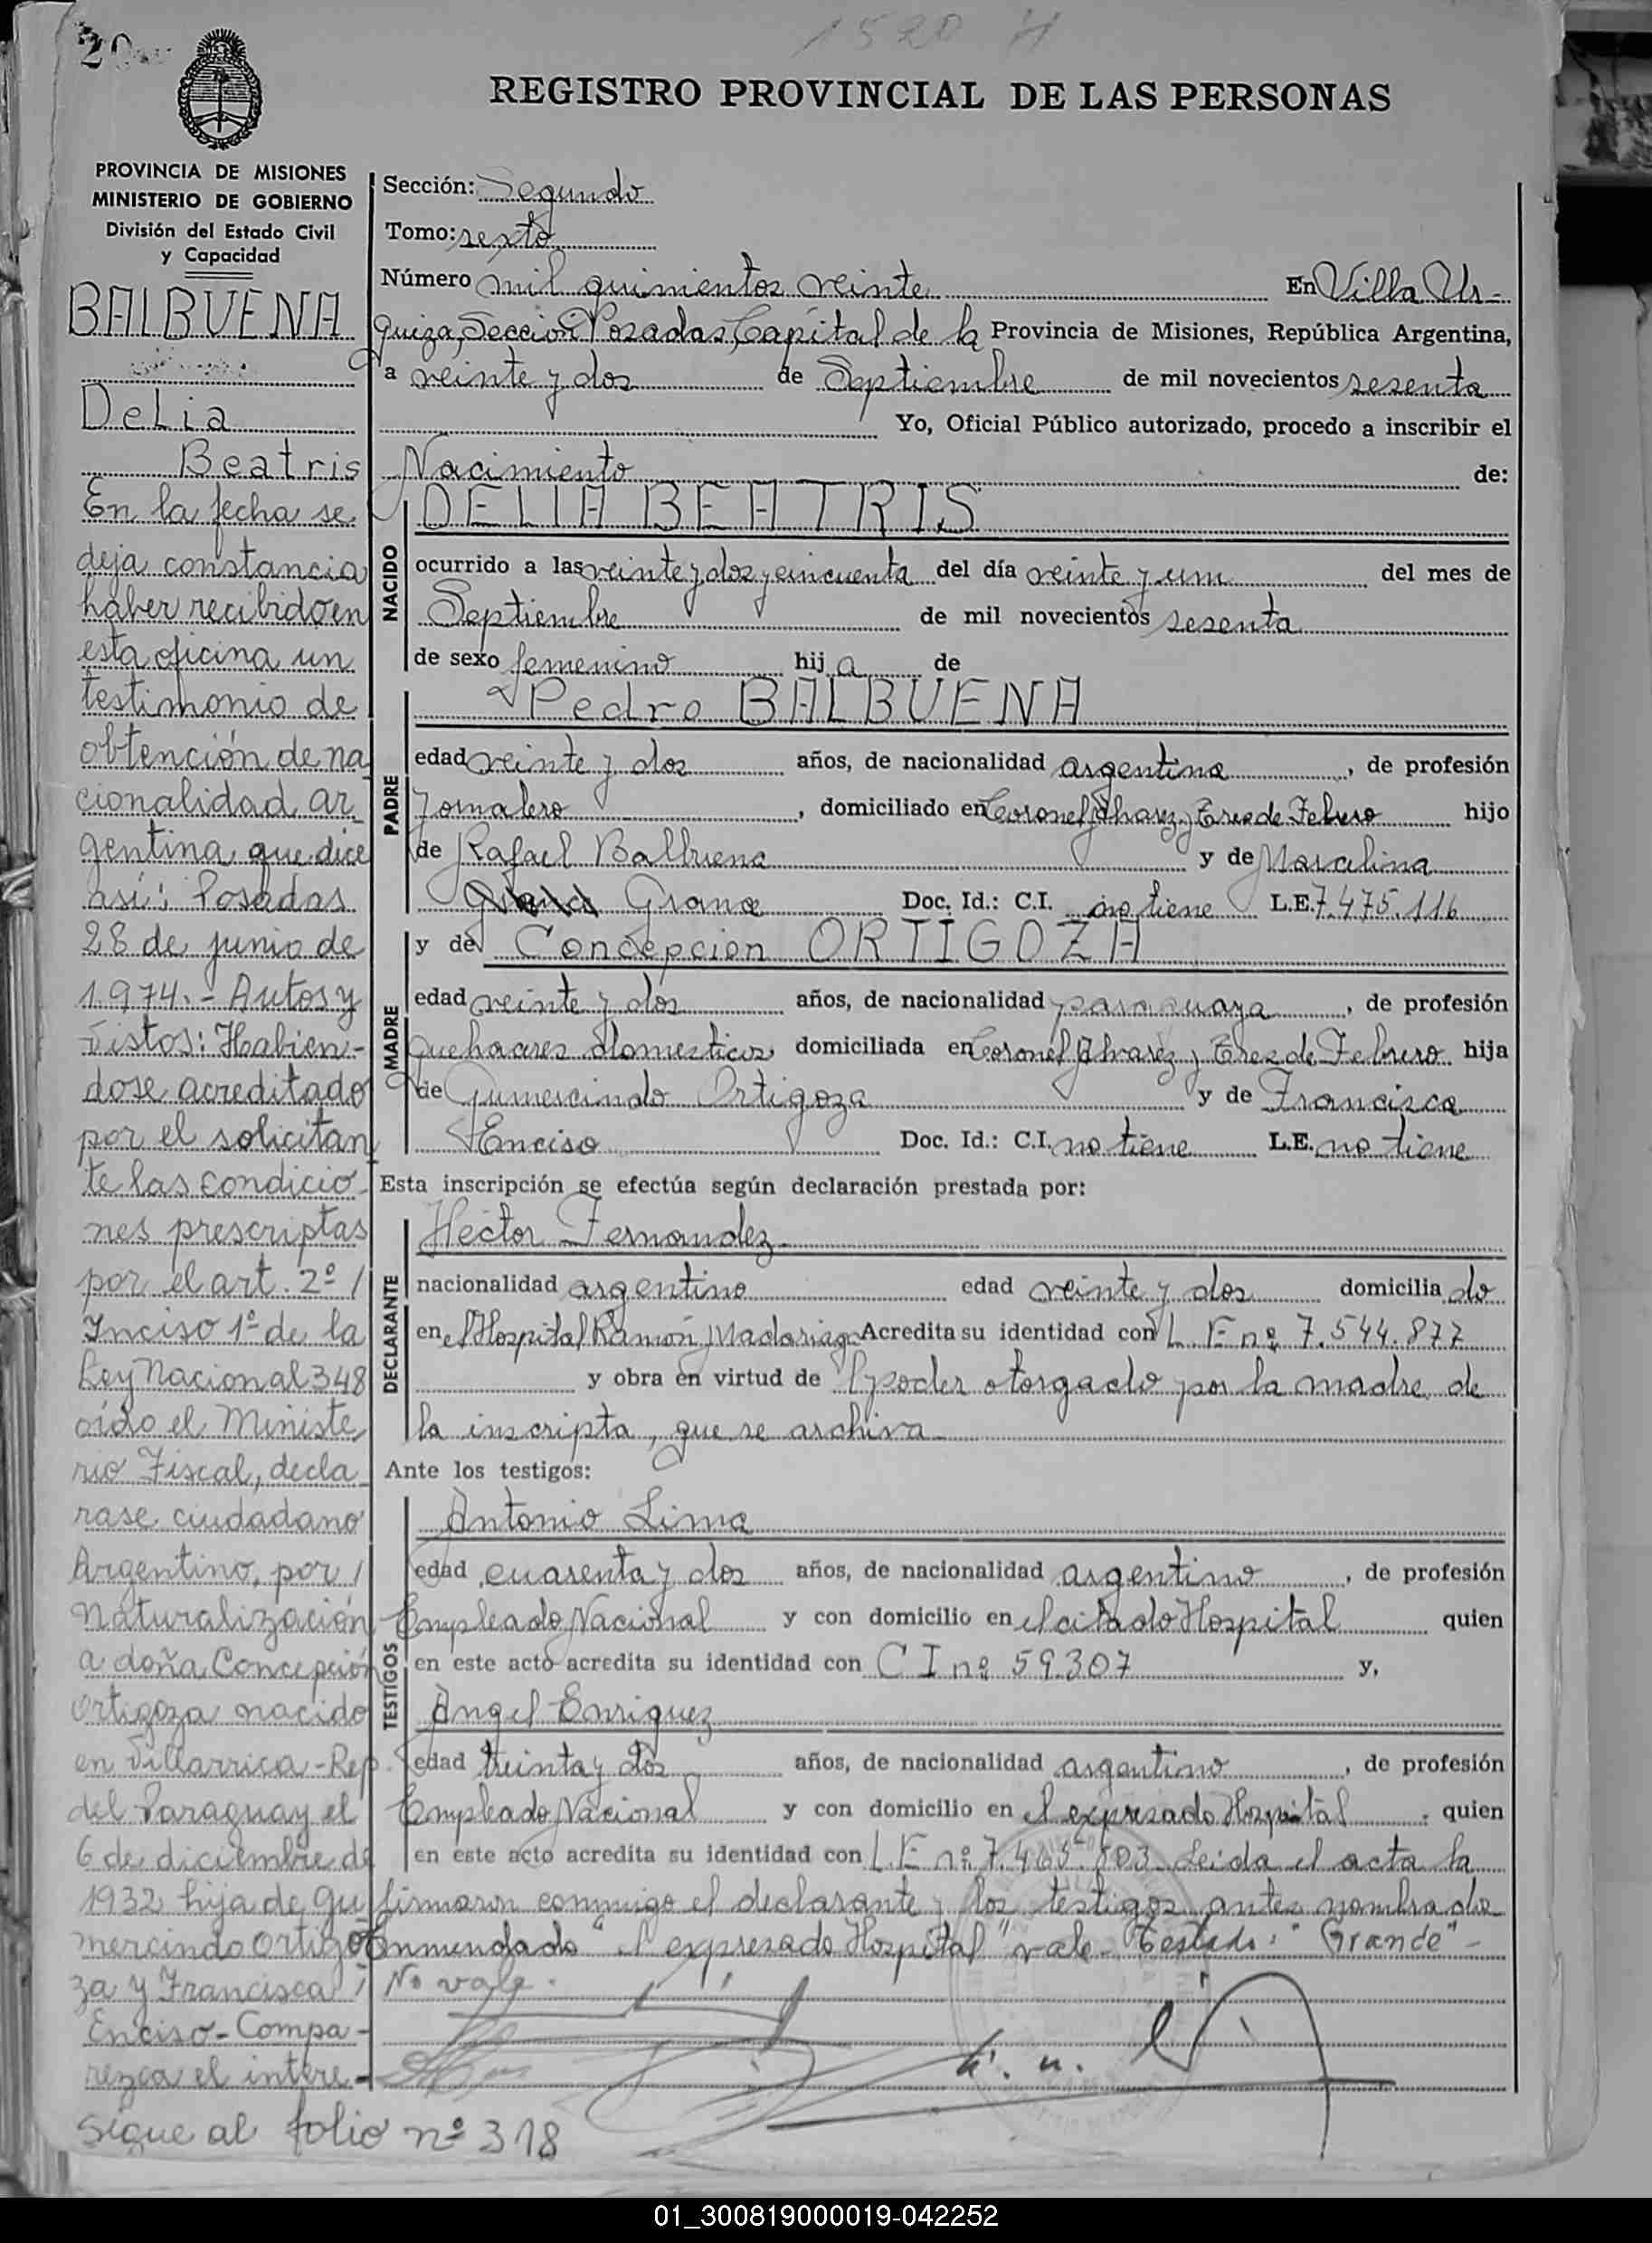 20
1520 H
REGISTRO PROVINCIAL DE LAS PERSONAS
PROVINCIA DE MISIONES
MINISTERIO DE GOBIERNO
División del Estado Civil
y Capacidad
BALBUENA
Delia
Beatris
En la fecha se
deja constancia
haber recibido en
esta oficina un
testimonio de
obtención de na
cionalidad ar
gentina que dice
así: Posadas
28 de junio de
1.974.- Autos y
vistos: Habien-
dose acreditado
por el solicitan
te las condicio
nes prescriptas
por el art. 2º /
Inciso 1º de la
Ley Nacional 348
oído el Ministe
rio Fiscal, decla
rase ciudadano
Argentino, por /
Naturalización
a doña Concepción
Ortigoza nacido
en Villarrica - Rep.
del Paraguay el
6 de diciembre de
1932 hija de Gu
mercindo Ortigo
za y Francisca /
Enciso - Compa-
rezca el intere-
sigue al folio nº 318
Sección: Segundo
Tomo: sexto
Número mil quinientos veinte En Villa Ur-
quiza, Sección Posadas, Capital de la Provincia de Misiones, República Argentina,
a veinte y dos de Septiembre de mil novecientos sesenta
Yo, Oficial Público autorizado, procedo a inscribir el
Nacimiento de:
NACIDO
DELIA BEATRIS
ocurrido a las veinte y dos y cincuenta del día veinte y un del mes de
Septiembre de mil novecientos sesenta
de sexo femenino hija de
PADRE
Pedro BALBUENA
edad veinte y dos años, de nacionalidad argentina, de profesión
Jornalero, domiciliado en Coronel Alvarez y Tres de Febrero hijo
de Rafael Balbuena y de Marcelina
Grana Doc. Id.: C.I. no tiene L.E. 7.475.116
MADRE
y de Concepcion ORTIGOZA
edad veinte y dos años, de nacionalidad paraguaya, de profesión
Quehaceres domesticos, domiciliada en Coronel Alvarez y Tres de Febrero hija
de Gumercindo Ortigoza y de Francisca
Enciso Doc. Id.: C.I. no tiene L.E. no tiene
Esta inscripción se efectúa según declaración prestada por:
DECLARANTE
Héctor Fernandez
nacionalidad argentino edad veinte y dos domiciliado
en el Hospital Ramón Madariaga Acredita su identidad con L.E nº 7.544.877
y obra en virtud de poder otorgado por la madre de
la inscripta, que se archiva
Ante los testigos:
TESTIGOS
Antonio Lima
edad cuarenta y dos años, de nacionalidad argentino, de profesión
Empleado Nacional y con domicilio en el citado Hospital quien
en este acto acredita su identidad con C I nº 59.307 y,
Angel Enriquez
edad treinta y dos años, de nacionalidad argentino, de profesión
Empleado Nacional y con domicilio en el expresado Hospital, quien
en este acto acredita su identidad con L.E nº 7.465.803 Leida el acta la
firmaron conmigo el declarante y los testigos antes nombrados
Enmendado "el expresado Hospital" vale - Testado: "Grande" -
No vale.
01_300819000019-042252